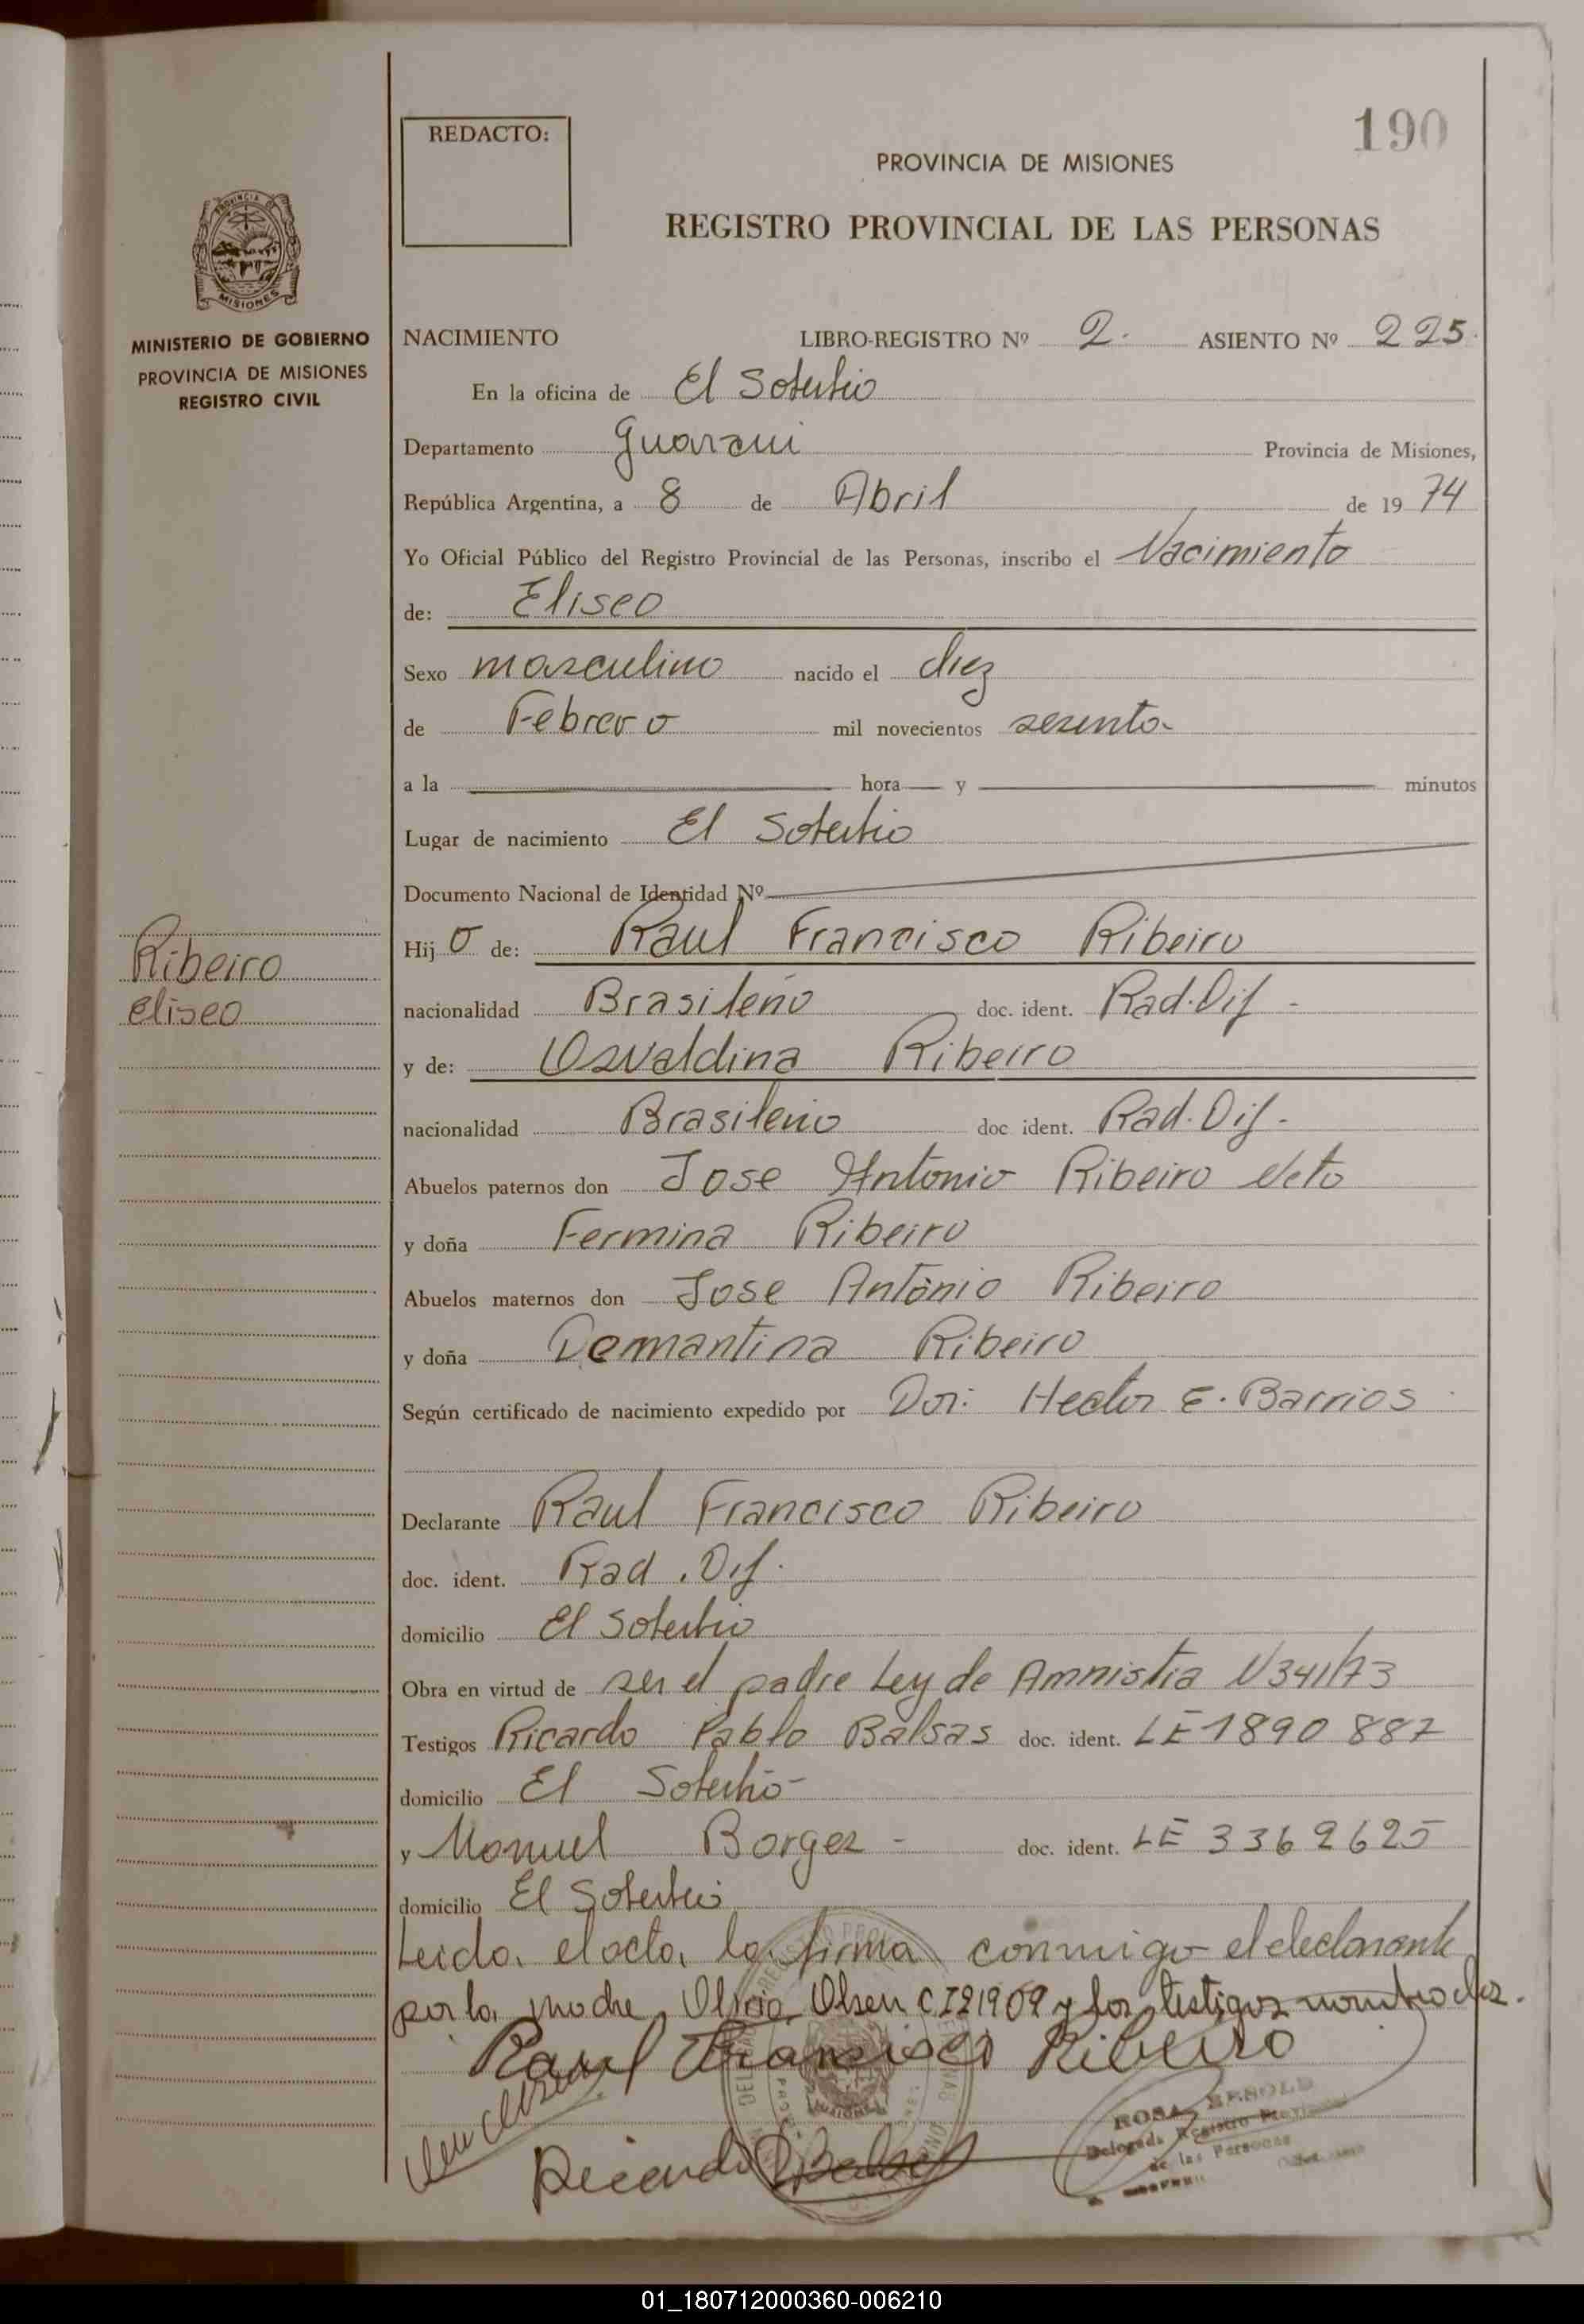 190
REDACTO:
PROVINCIA DE MISIONES
REGISTRO PROVINCIAL DE LAS PERSONAS
PROVINCIA DE
MISIONES
MINISTERIO DE GOBIERNO
PROVINCIA DE MISIONES
REGISTRO CIVIL
NACIMIENTO LIBRO-REGISTRO Nº 2. ASIENTO Nº 225.
En la oficina de El Soberbio
Departamento Guarani Provincia de Misiones,
República Argentina, a 8 de Abril de 1974
Yo Oficial Público del Registro Provincial de las Personas, inscribo el Nacimiento
de: Eliseo
Sexo masculino nacido el diez
de Febrero mil novecientos sesenta
a la hora y minutos
Lugar de nacimiento El Soberbio
Documento Nacional de Identidad Nº
Ribeiro
Eliseo
Hijo de: Raul Francisco Ribeiro
nacionalidad Brasileño doc. ident. Rad. Dif -
y de: Osvaldina Ribeiro
nacionalidad Brasileño doc. ident. Rad. Dif -
Abuelos paternos don Jose Antonio Ribeiro Neto
y doña Fermina Ribeiro
Abuelos maternos don Jose Antonio Ribeiro
y doña Demantina Ribeiro
Según certificado de nacimiento expedido por Dor: Hector E. Barrios
Declarante Raul Francisco Ribeiro
doc. ident. Rad. Dif.
domicilio El Soberbio
Obra en virtud de ser el padre Ley de Amnistia N341/73
Testigos Ricardo Pablo Balsas doc. ident. LE 1890887
domicilio El Soberbio -
y Manuel Borges - doc. ident. LE 3369625
domicilio El Soberbio
Leida el acta, la firma conmigo el declarante
por la madre Olsen CI81909 y los testigos nombrados.
Raul Francisco Ribeiro
Ricardo Balsas
ROSA
Delegada Registro Provincial
de las Personas
01_180712000360-006210